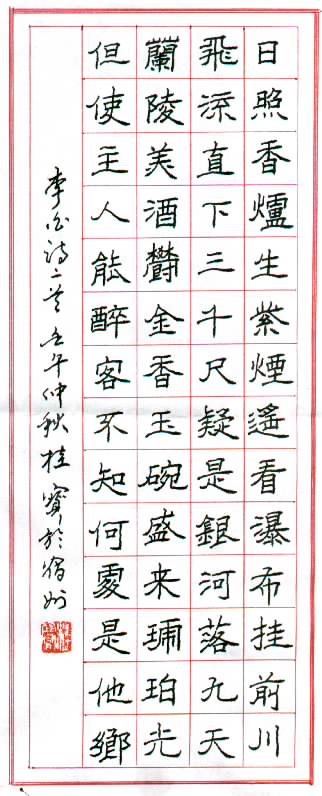 日照香爐生紫煙遙看瀑布挂前川
飛流直下三千尺疑是銀河落九天
蘭陵美酒鬱金香玉碗盛来琥珀光
但使主人能醉客不知何處是他鄉
李白诗二首壬午仲秋桂寶於宿州